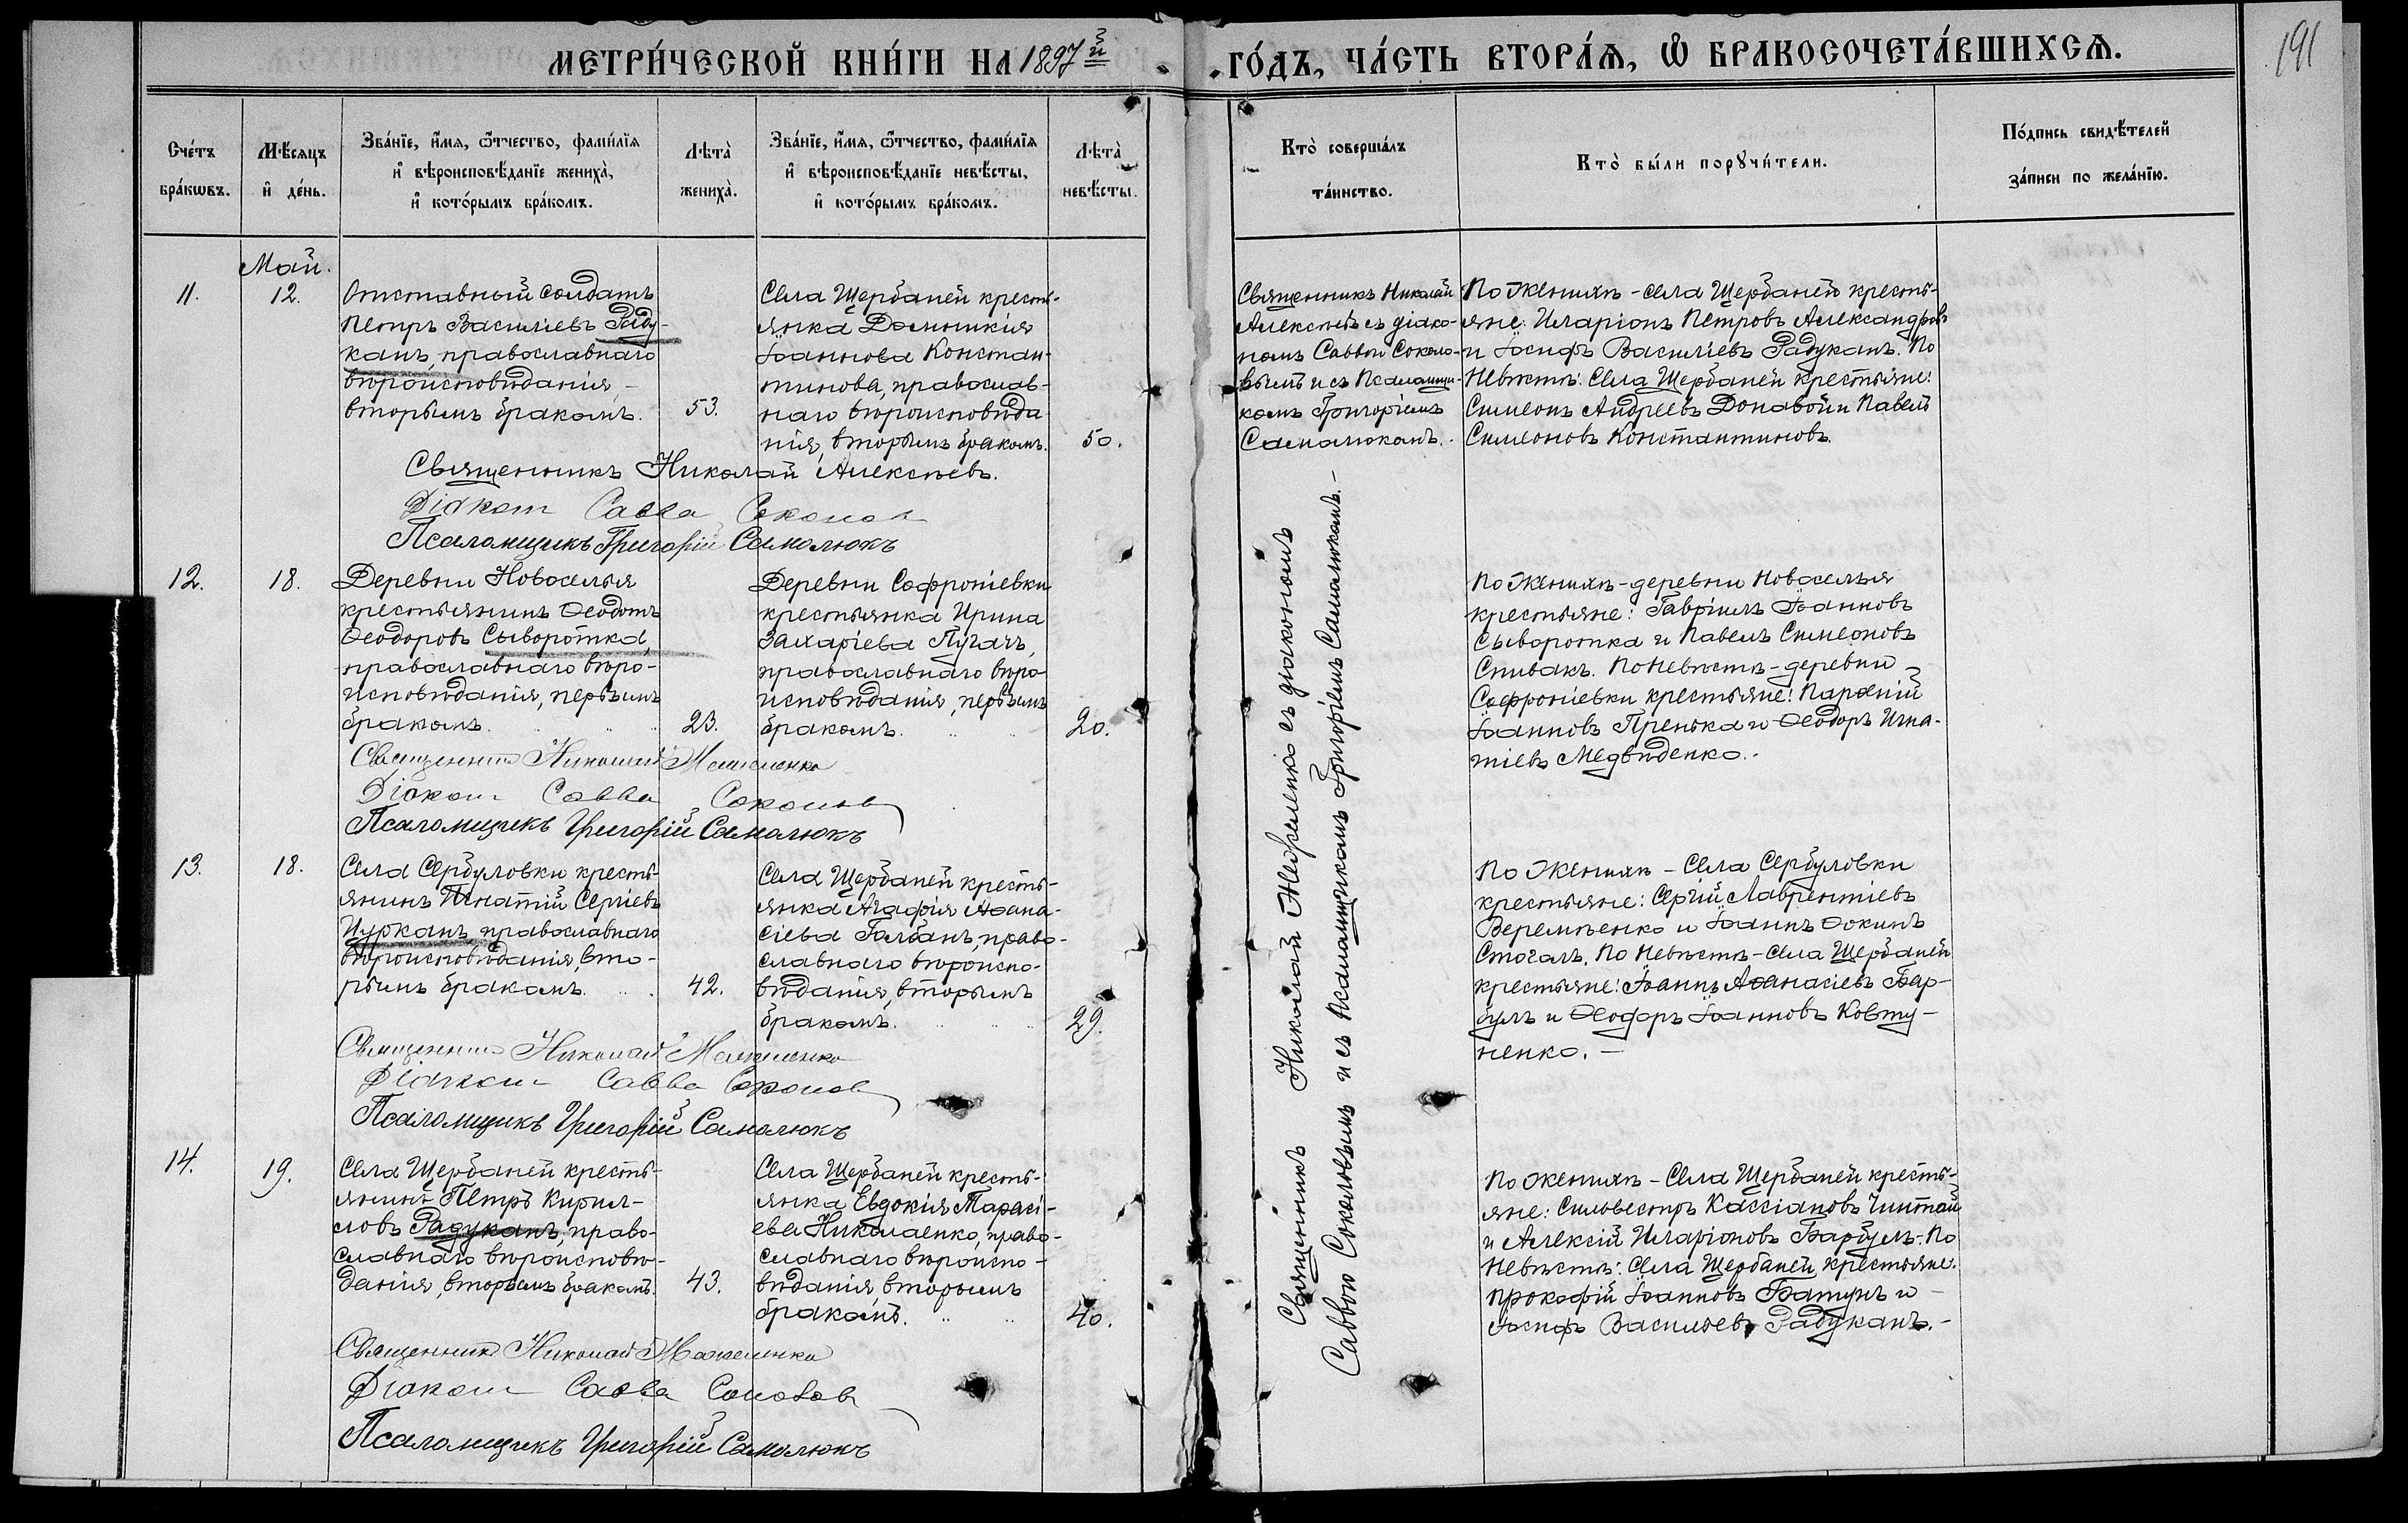 МЕТРИ́ЧЕСКОЙ КНИ́ГИ НА 1897й
ГО́ДЪ, ЧА́СТЬ ВТОРА́Ѧ, Ѡ҆ БРАКОСОЧЕТА́ВШИХСѦ.
191
Сче́тъ бра́кѡвъ.
Мѣ́сяцъ и҆ де́нь.
Зва́нїе, и҆́мя, ѻ҆́тчество, фами́лїя и҆ вѣроисповѣ́данїе жениха̀, и҆ кото́рымъ бра́комъ.
Лѣта̀ жениха̀.
Зва́нїе, и҆́мя, ѻ҆́тчество, фами́лїя и҆ вѣроисповѣ́данїе невѣ́сты, и҆ кото́рымъ бра́комъ.
Лѣта̀ невѣ́сты.
Кто̀ соверша́лъ та́инство.
Кто̀ бы́ли порꙋчи́тели.
По́дпись свидѣ́телей за́писи по жела́нїю.
Май.
11.
12.
Отставный солдатъ
Петръ Василіевъ Раду-
канъ, православнаго
вѣроисповѣданія, -
вторымъ бракомъ.
53.
Села Щербаней кресть-
янка Домникія
Іоаннова Констан-
тинова, православ-
наго вѣроисповѣда
нія, вторымъ бракомъ.
50.
Священникъ Николай
Алексѣевъ съ діако-
номъ Саввою Соколо-
вымъ и съ Псаломщи-
комъ Григоріемъ
Самолюкомъ.
По Женихѣ - села Щербаней кресть-
яне: Иларіонъ Петровъ Александровъ
и Іосифъ Василіевъ Радуканъ. По
Невѣстѣ: Села Щербаней крестьяне:
Симеонъ Андреевъ Донавой и Павелъ
Симеоновъ Константиновъ.
Священникъ Николай Алексѣевъ.
Діаконъ Савва Соколовъ
Псаломщикъ Григорій Самолюкъ
12.
18.
Деревни Новоселья
крестьянинъ Ѳеодотъ
Ѳеодоровъ Сыворотка,
православнаго вѣро-
исповѣданія, первымъ
бракомъ.
23.
Деревни Софроніевки
крестьянка Ирина
Захаріева Пугачъ,
православнаго вѣро-
исповѣданія, первымъ
бракомъ.
20.
По Женихѣ - деревни Новоселья
крестьяне: Гавріилъ Іоанновъ
Сыворотка и Павелъ Симеоновъ
Спивакъ. По Невѣстѣ - деревни
Софроніевки крестьяне: Парѳеній
Іоанновъ Пренька и Ѳеодоръ Игна-
тіевъ Медвѣденко.
Священникъ Николай
Діаконъ Савва Соколовъ
Псаломщикъ Григорій Самолюкъ
13.
18.
Села Сербуловки кресть-
янинъ Игнатій Сергіевъ
Цурканъ, православнаго
вѣроисповѣданія, вто-
рымъ бракомъ.
42.
Села Щербаней кресть-
янка Агафія Аѳана-
сіева Галбанъ, право-
славнаго вѣроиспо-
вѣданія, вторымъ
бракомъ.
29.
По Женихѣ - Села Сербуловки
крестьяне: Сергій Лаврентіевъ
Веремѣенко и Іоаннъ Ѳокинъ
Стогалъ. По Невѣстѣ - Села Щербаней
крестьяне: Іоаннъ Аѳанасіевъ Бар-
булъ и Ѳеодоръ Іоанновъ Ковту-
ненко. -
Священникъ Николай
Діаконъ Савва Соколовъ
Псаломщикъ Григорій Самолюкъ
14.
19.
Села Щербаней кресть-
янинъ Петръ Кирил-
ловъ Радуканъ, право-
славнаго вѣроисповѣ-
данія, вторымъ бракомъ.
43.
Села Щербаней кресть-
янка Евдокія Тарасі-
ева Николаенко, право-
славнаго вѣроиспо-
вѣданія, вторымъ
бракомъ.
40.
По Женихѣ - Села Щербаней кресть-
яне: Сильвестръ Кассіановъ Чинтай
и Алексій Иларіоновъ Барбулъ. По
Невѣстѣ: Села Щербаней крестьяне:
Прокофій Іоанновъ Батунъ и
Іосифъ Васильевъ Радуканъ. -
Священникъ Николай
Діаконъ Савва Соколовъ
Псаломщикъ Григорій Самолюкъ
Священникъ Николай съ діакономъ
Саввою Соколовымъ и съ Псаломщикомъ Григоріемъ Самолюкомъ. -